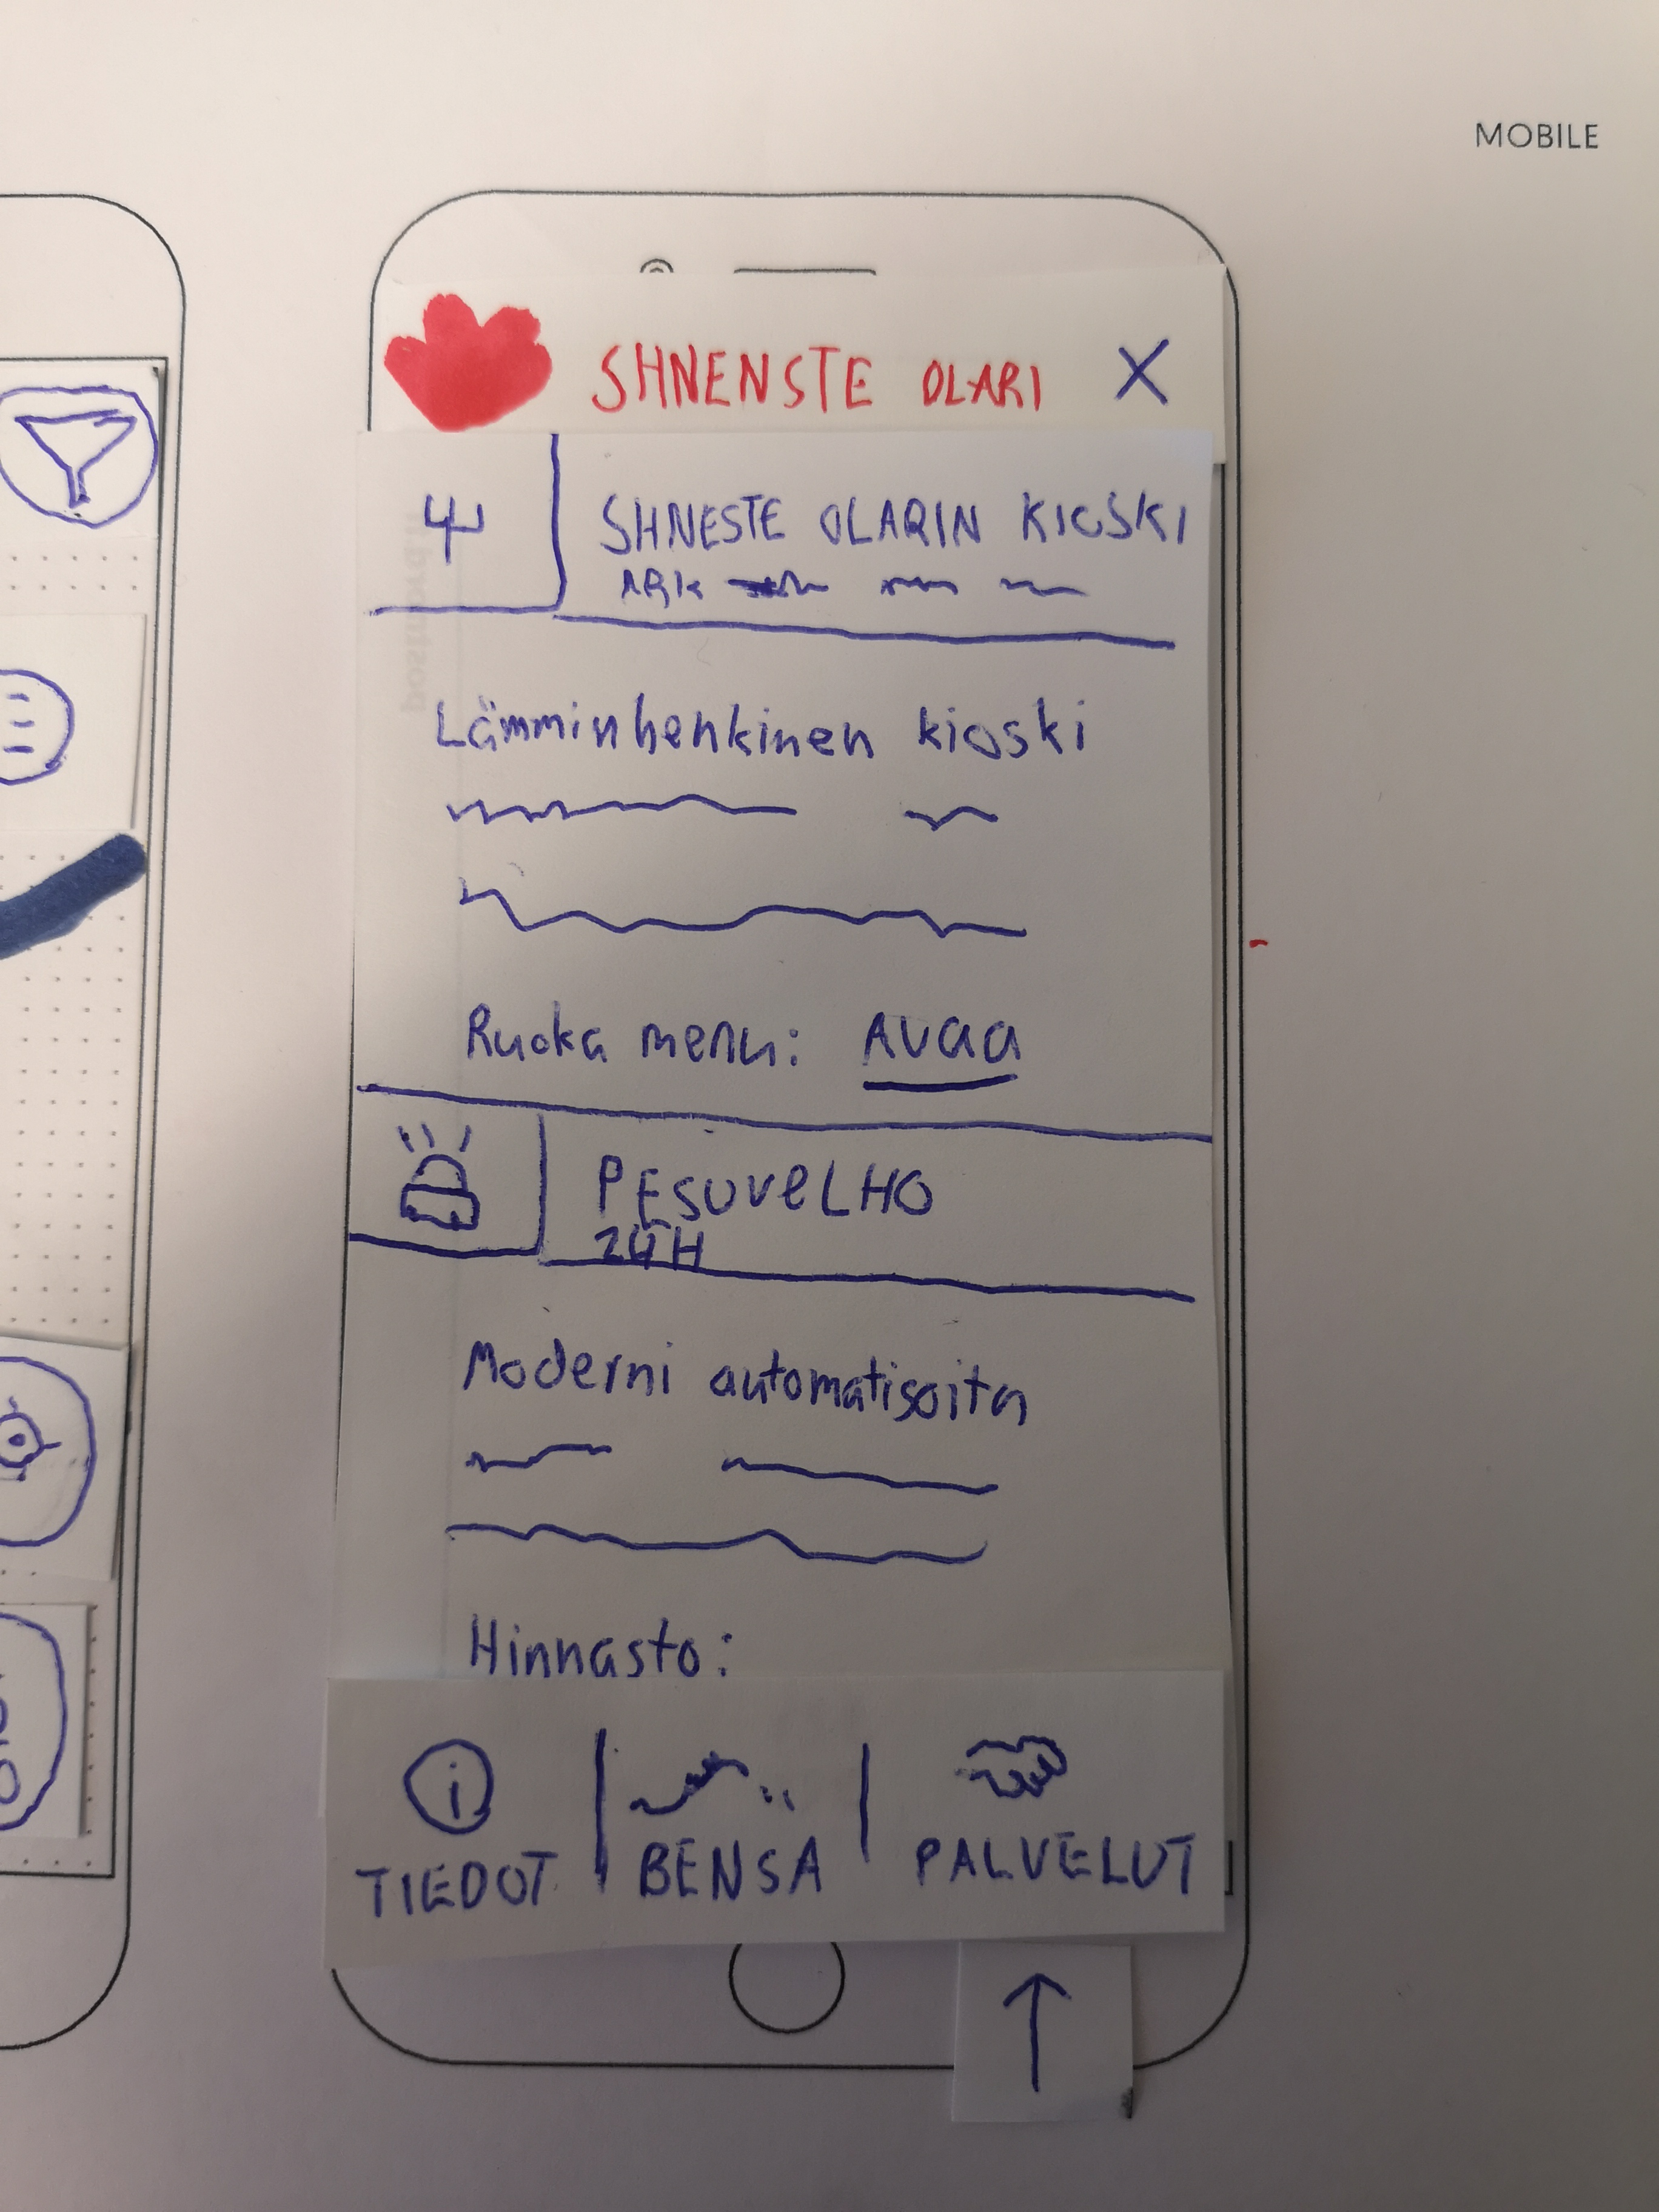 MOBILE
SHNENSTE OLARI X
SHNESTE OLARIN KIOSKI
ARK
Lämminhenkinen kioski
Ruoka menu: AVAA
PESUVELHO
24H
Moderni automatisoitn
Hinnasto:
i
TIEDOT BENSA PALVELUT